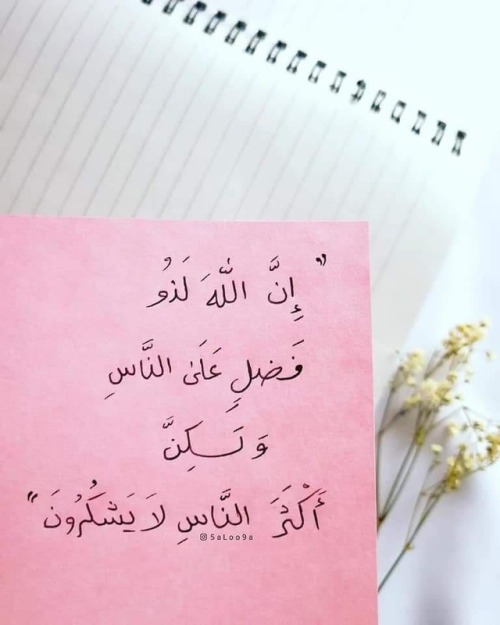 " إِنَّ اللَّهَ لَذُو
فَضلٍ عَلَى النَّاسِ
وَلَـكِنَّ
أَكْثَرَ النَّاسِ لَا يَشكُرُونَ "
5aLoo9a